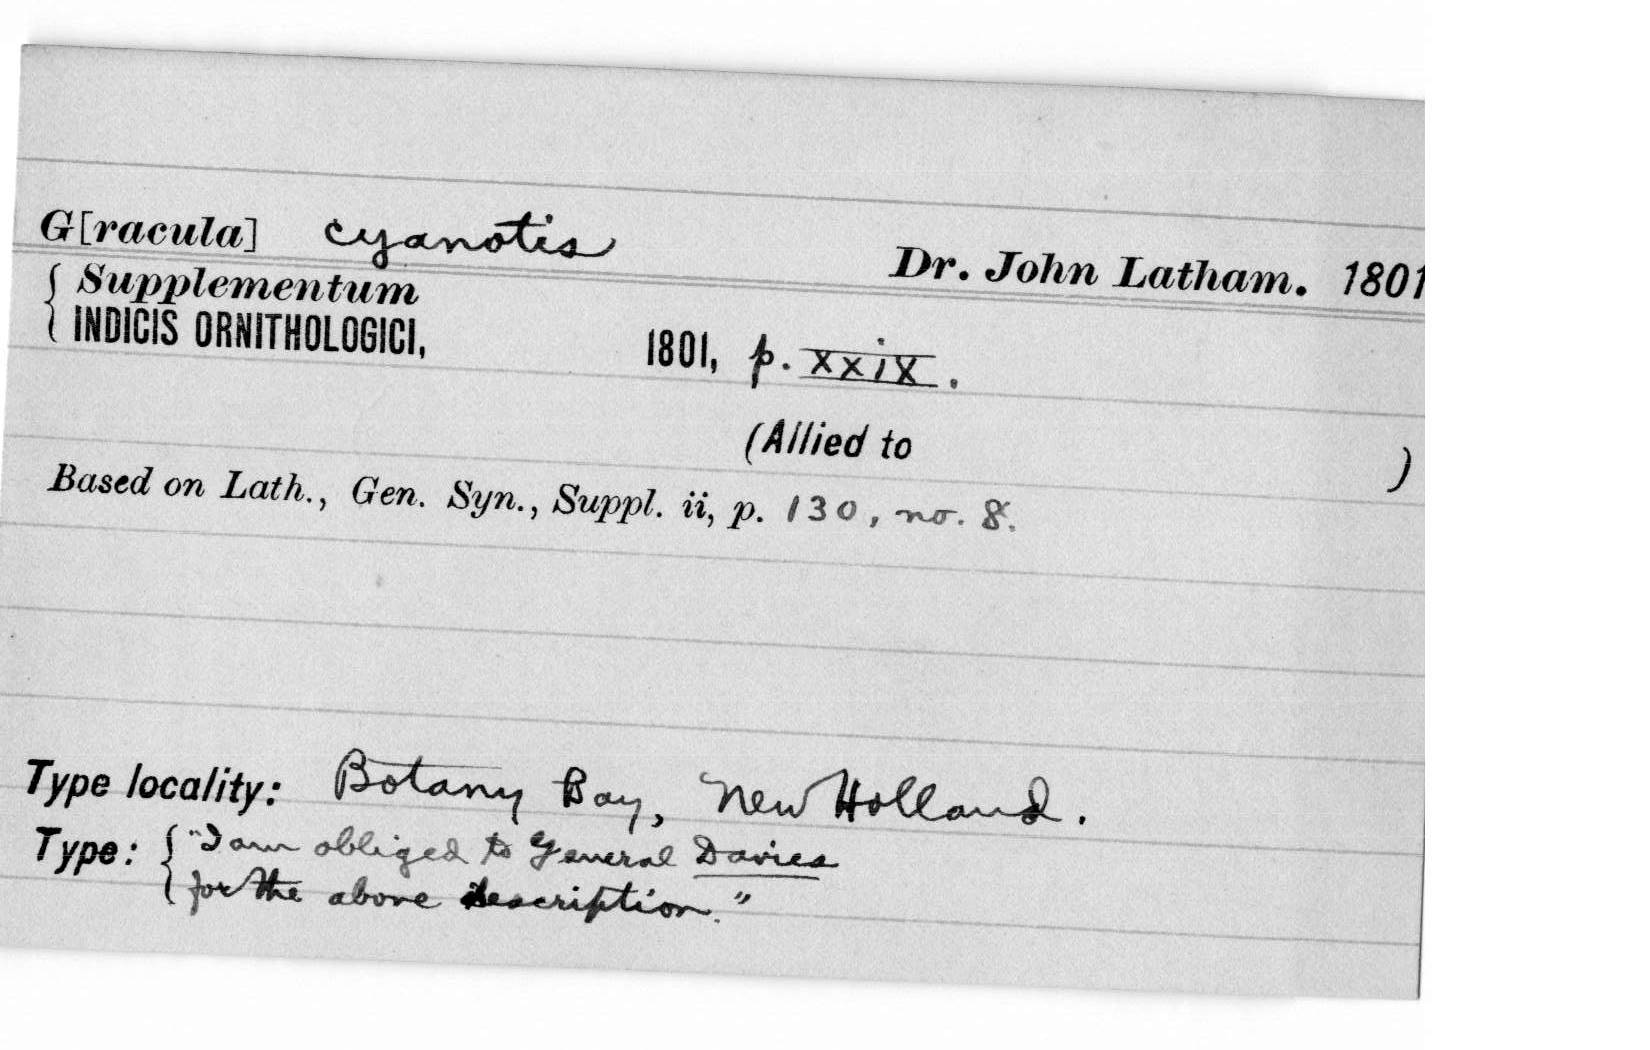 G[racula] cyanotis
Dr. John Latham. 1801
{ Supplementum
{ INDICIS ORNITHOLOGICI, 1801, p. xxix.
(Allied to )
Based on Lath., Gen. Syn., Suppl. ii, p. 130, no. 8.
Type locality: Botany Bay, New Holland.
Type: { "I am obliged to General Davies
for the above description."